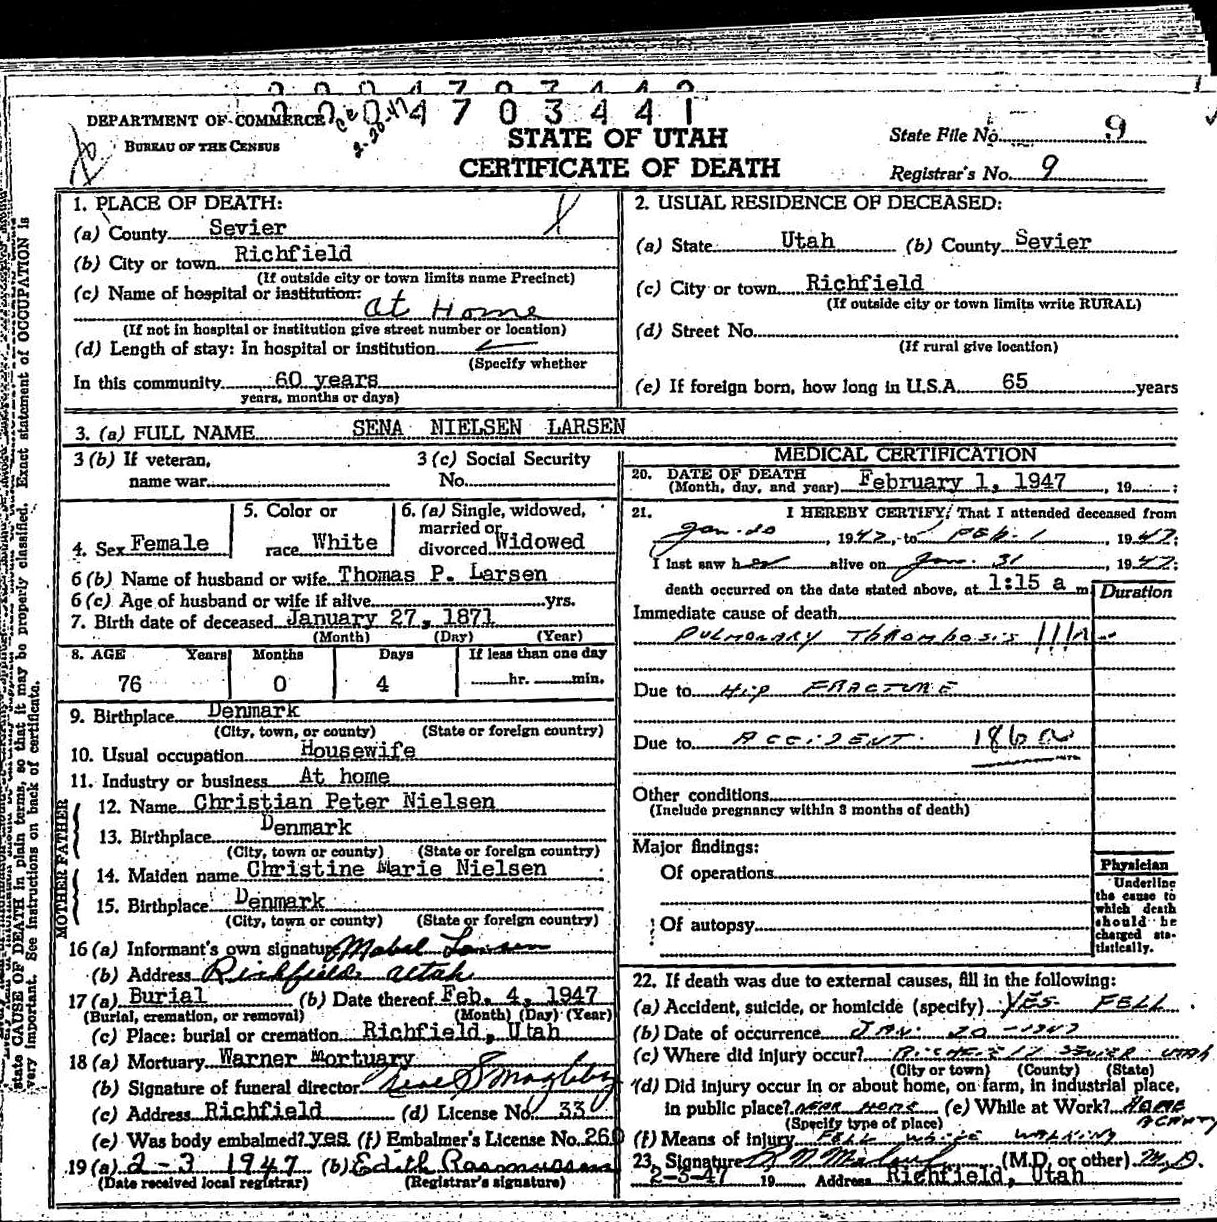 2004703441
DEPARTMENT OF COMMERCE
BUREAU OF THE CENSUS
2-20-47
STATE OF UTAH
CERTIFICATE OF DEATH
State File No. 9
Registrar's No. 9
1. PLACE OF DEATH:
(a) County Sevier
(b) City or town Richfield
(If outside city or town limits name Precinct)
(c) Name of hospital or institution:
at Home
(If not in hospital or institution give street number or location)
(d) Length of stay: In hospital or institution
(Specify whether
In this community 60 years
years, months or days)
2. USUAL RESIDENCE OF DECEASED:
(a) State Utah (b) County Sevier
(c) City or town Richfield
(If outside city or town limits write RURAL)
(d) Street No.
(If rural give location)
(e) If foreign born, how long in U.S.A. 65 years
3. (a) FULL NAME SENA NIELSEN LARSEN
3 (b) If veteran, name war
3 (c) Social Security No.
4. Sex Female
5. Color or race White
6. (a) Single, widowed, married or divorced Widowed
6 (b) Name of husband or wife Thomas P. Larsen
6 (c) Age of husband or wife if alive yrs.
7. Birth date of deceased January 27, 1871
(Month) (Day) (Year)
8. AGE Years Months Days If less than one day
76 0 4 hr. min.
9. Birthplace Denmark
(City, town, or county) (State or foreign country)
10. Usual occupation Housewife
11. Industry or business At home
FATHER
12. Name Christian Peter Nielsen
13. Birthplace Denmark
(City, town or county) (State or foreign country)
MOTHER
14. Maiden name Christine Marie Nielsen
15. Birthplace Denmark
(City, town or county) (State or foreign country)
16 (a) Informant's own signature Mabel Larsen
(b) Address Richfield Utah
17 (a) Burial (b) Date thereof Feb. 4, 1947
(Burial, cremation, or removal) (Month) (Day) (Year)
(c) Place: burial or cremation Richfield, Utah
18 (a) Mortuary Warner Mortuary
(b) Signature of funeral director
(c) Address Richfield (d) License No. 33
(e) Was body embalmed? yes (f) Embalmer's License No. 260
19 (a) 2-3 1947 (b) Edith Rasmussen
(Date received local registrar) (Registrar's signature)
MEDICAL CERTIFICATION
20. DATE OF DEATH
(Month, day, and year) February 1, 1947, 19 ;
21. I HEREBY CERTIFY, That I attended deceased from
Jan. 20, 1947, to Feb. 1, 1947;
I last saw her alive on Jan. 31, 1947;
death occurred on the date stated above, at 1:15 a m.
Duration
Immediate cause of death
PULMONARY THROMBOSIS
Due to HIP FRACTURE
Due to ACCIDENT. 186a
Other conditions
(Include pregnancy within 3 months of death)
Major findings:
Of operations
Of autopsy
Physician
Underline
the cause to
which death
should be
charged sta-
tistically.
22. If death was due to external causes, fill in the following:
(a) Accident, suicide, or homicide (specify) YES FELL
(b) Date of occurrence JAN. 20-1947
(c) Where did injury occur? RICHFIELD SEVIER UTAH
(City or town) (County) (State)
(d) Did injury occur in or about home, on farm, in industrial place,
in public place? NEAR HOME (e) While at Work? HOME
(Specify type of place)
(f) Means of injury FELL WHILE WALKING
23. Signature (M.D. or other) M.D.
2-3-47 19 Address Richfield, Utah
state CAUSE OF DEATH in plain terms, so that it may be properly classified. Exact statement of OCCUPATION is
very important. See instructions on back of certificate.